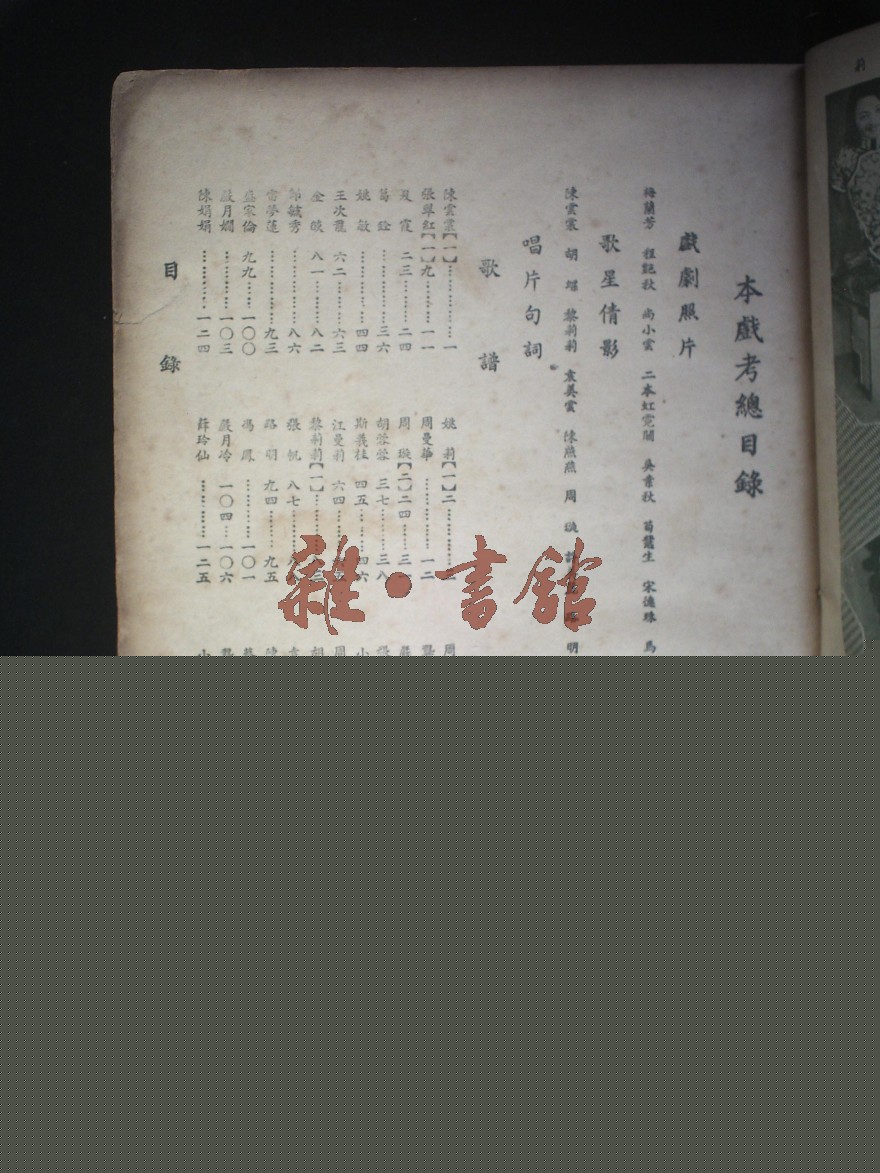 本戲考總目錄
戲劇照片
梅蘭芳 程艷秋 尚小雲 二本虹霓關 吳素秋 荀慧生 宋德珠 馬
歌星倩影
陳雲裳 胡蝶 黎莉莉 袁美雲 陳燕燕 周璇 明
唱片句詞
歌譜
陳雲裳【一】……一 姚莉【一】二…… 周
張翠紅【一】九……一一 周曼華……一二 龔
夏霞 二三……二四 周璇【二】二四……三 嚴
葛銓……三六 胡蓉蓉 三七……三八 張
姚敏……四四 斯義桂 四五……四六 小
王次龍 六二……六三 江曼莉 六四…… 周
金燄 八一……八二 黎莉莉【一】…… 胡
郎毓秀……八六 張帆 八七…… 袁
雷夢蓮……九三 路明 九四……九五 陳
盛家倫 九九……一〇〇 馮鳳……一〇一
嚴月嫻……一〇三 嚴月泠 一〇四…一〇六
陳娟娟……一二四 薛玲仙……一二五 小
目錄
雜·書舘